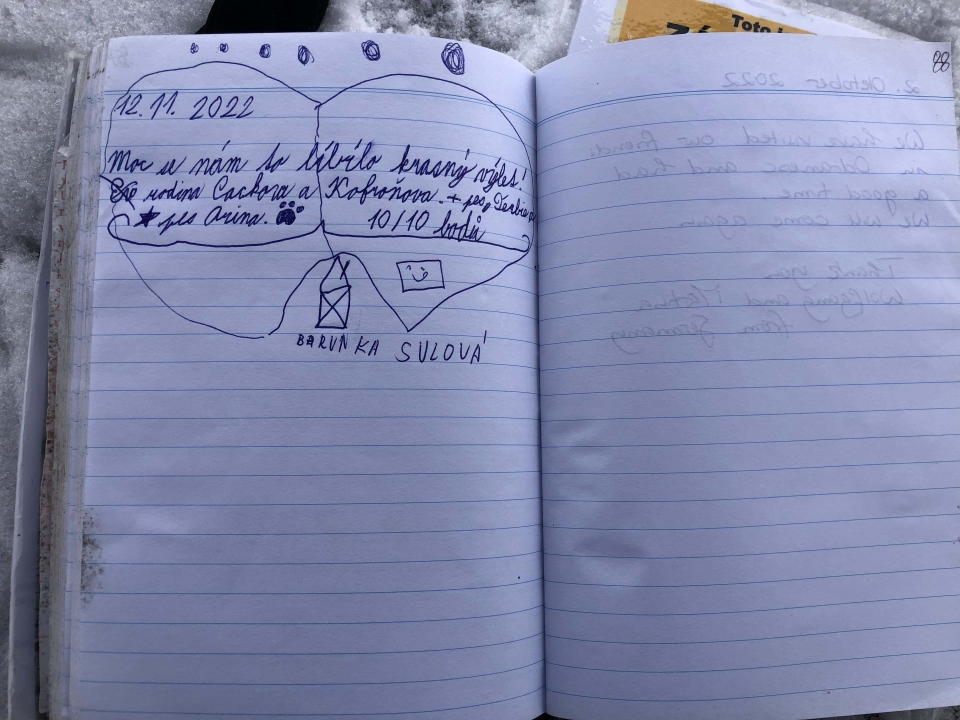 12. 11. 2022
Moc se nám to líbilo krasný výlet!
rodina Cachova a Kofroňova. + pes
pes Arina.
10/10 bodů
BARUŇKA SULOVÁ
Toto
88
2. Oktober 2022
We have visited our friends
in and had
a good time.
We will come again
Thank you
Wolfgang and Martina
from Germany